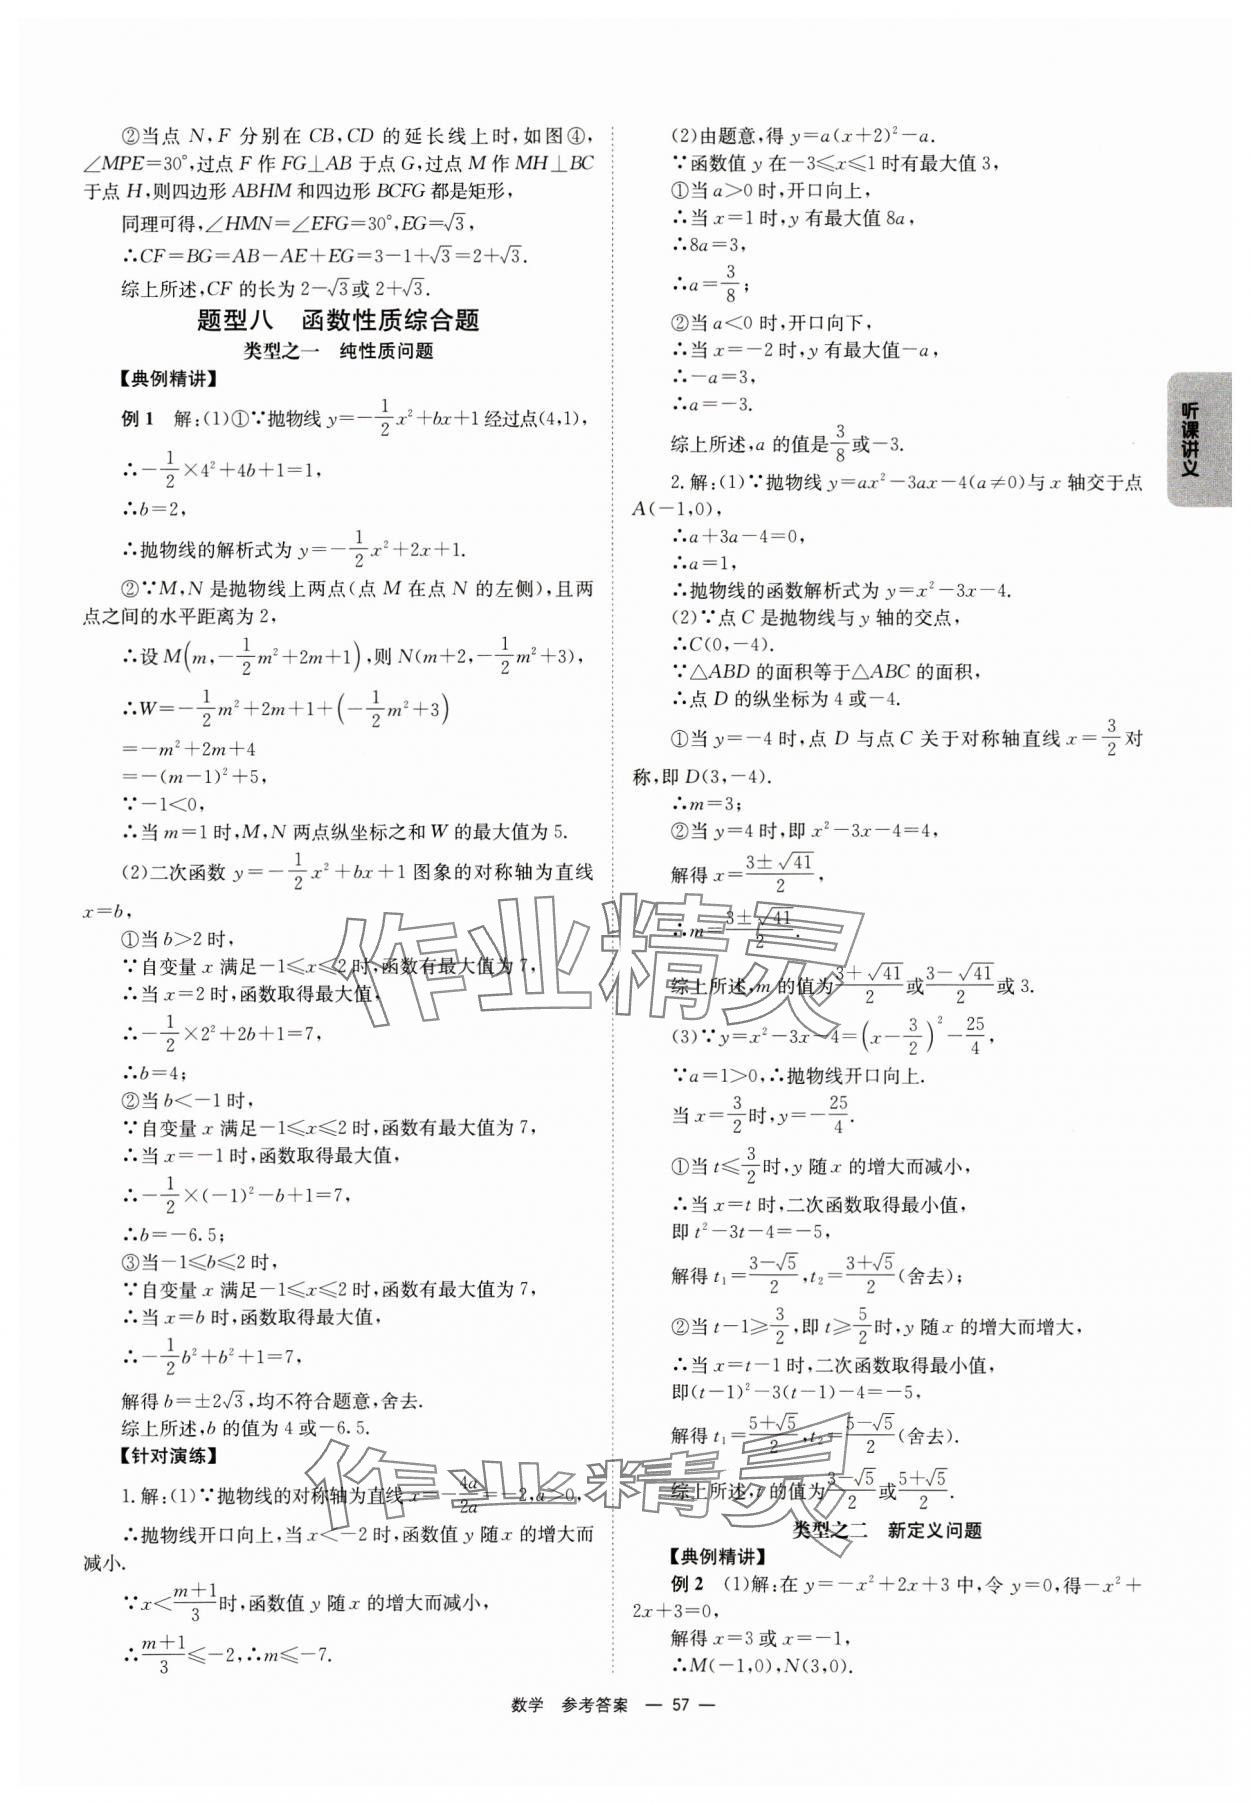 ②当点 N,F 分别在 CB,CD 的延长线上时,如图④,
∠MPE=30°,过点 F 作 FG⊥AB 于点 G,过点 M 作 MH⊥BC
于点 H,则四边形 ABHM 和四边形 BCFG 都是矩形,
同理可得,∠HMN=∠EFG=30°,EG=√3,
∴CF=BG=AB-AE+EG=3-1+√3=2+√3.
综上所述,CF 的长为 2-√3或 2+√3.
题型八 函数性质综合题
类型之一 纯性质问题
【典例精讲】
例 1 解:(1)①∵抛物线 y=-1/2x²+bx+1 经过点(4,1),
∴-1/2×4²+4b+1=1,
∴b=2,
∴抛物线的解析式为 y=-1/2x²+2x+1.
②∵M,N 是抛物线上两点(点 M 在点 N 的左侧),且两
点之间的水平距离为 2,
∴设 M(m,-1/2m²+2m+1),则 N(m+2,-1/2m²+3),
∴W=-1/2m²+2m+1+(-1/2m²+3)
=-m²+2m+4
=-(m-1)²+5,
∵-1<0,
∴当 m=1 时,M,N 两点纵坐标之和 W 的最大值为 5.
(2)二次函数 y=-1/2x²+bx+1 图象的对称轴为直线
x=b,
①当 b>2 时,
∵自变量 x 满足-1≤x≤2 时,函数有最大值为 7,
∴当 x=2 时,函数取得最大值,
∴-1/2×2²+2b+1=7,
∴b=4;
②当 b<-1 时,
∵自变量 x 满足-1≤x≤2 时,函数有最大值为 7,
∴当 x=-1 时,函数取得最大值,
∴-1/2×(-1)²-b+1=7,
∴b=-6.5;
③当-1≤b≤2 时,
∵自变量 x 满足-1≤x≤2 时,函数有最大值为 7,
∴当 x=b 时,函数取得最大值,
∴-1/2b²+b²+1=7,
解得 b=±2√3,均不符合题意,舍去.
综上所述,b 的值为 4 或-6.5.
【针对演练】
1.解:(1)∵抛物线的对称轴为直线 x=-4a/2a=-2,a>0,
∴抛物线开口向上,当 x<-2 时,函数值 y 随 x 的增大而
减小.
∵x<(m+1)/3时,函数值 y 随 x 的增大而减小,
∴(m+1)/3≤-2,∴m≤-7.
(2)由题意,得 y=a(x+2)²-a.
∵函数值 y 在-3≤x≤1 时有最大值 3,
①当 a>0 时,开口向上,
∴当 x=1 时,y 有最大值 8a,
∴8a=3,
∴a=3/8;
②当 a<0 时,开口向下,
∴当 x=-2 时,y 有最大值-a,
∴-a=3,
∴a=-3.
综上所述,a 的值是3/8或-3.
2.解:(1)∵抛物线 y=ax²-3ax-4(a≠0)与 x 轴交于点
A(-1,0),
∴a+3a-4=0,
∴a=1,
∴抛物线的函数解析式为 y=x²-3x-4.
(2)∵点 C 是抛物线与 y 轴的交点,
∴C(0,-4).
∵△ABD 的面积等于△ABC 的面积,
∴点 D 的纵坐标为 4 或-4.
①当 y=-4 时,点 D 与点 C 关于对称轴直线 x=3/2对
称,即 D(3,-4).
∴m=3;
②当 y=4 时,即 x²-3x-4=4,
解得 x=(3±√41)/2,
∴m=(3±√41)/2.
综上所述,m 的值为(3+√41)/2或(3-√41)/2或 3.
(3)∵y=x²-3x-4=(x-3/2)²-25/4,
∵a=1>0,∴抛物线开口向上.
当 x=3/2时,y=-25/4.
①当 t≤3/2时,y 随 x 的增大而减小,
∴当 x=t 时,二次函数取得最小值,
即 t²-3t-4=-5,
解得 t₁=(3-√5)/2,t₂=(3+√5)/2(舍去);
②当 t-1≥3/2,即 t≥5/2时,y 随 x 的增大而增大,
∴当 x=t-1 时,二次函数取得最小值,
即(t-1)²-3(t-1)-4=-5,
解得 t₁=(5+√5)/2,t₂=(5-√5)/2(舍去).
综上所述,t 的值为(3-√5)/2或(5+√5)/2.
类型之二 新定义问题
【典例精讲】
例 2 (1)解:在 y=-x²+2x+3 中,令 y=0,得-x²+
2x+3=0,
解得 x=3 或 x=-1,
∴M(-1,0),N(3,0).
听课讲义
作业精灵
作业精灵
数学 参考答案 — 57 —